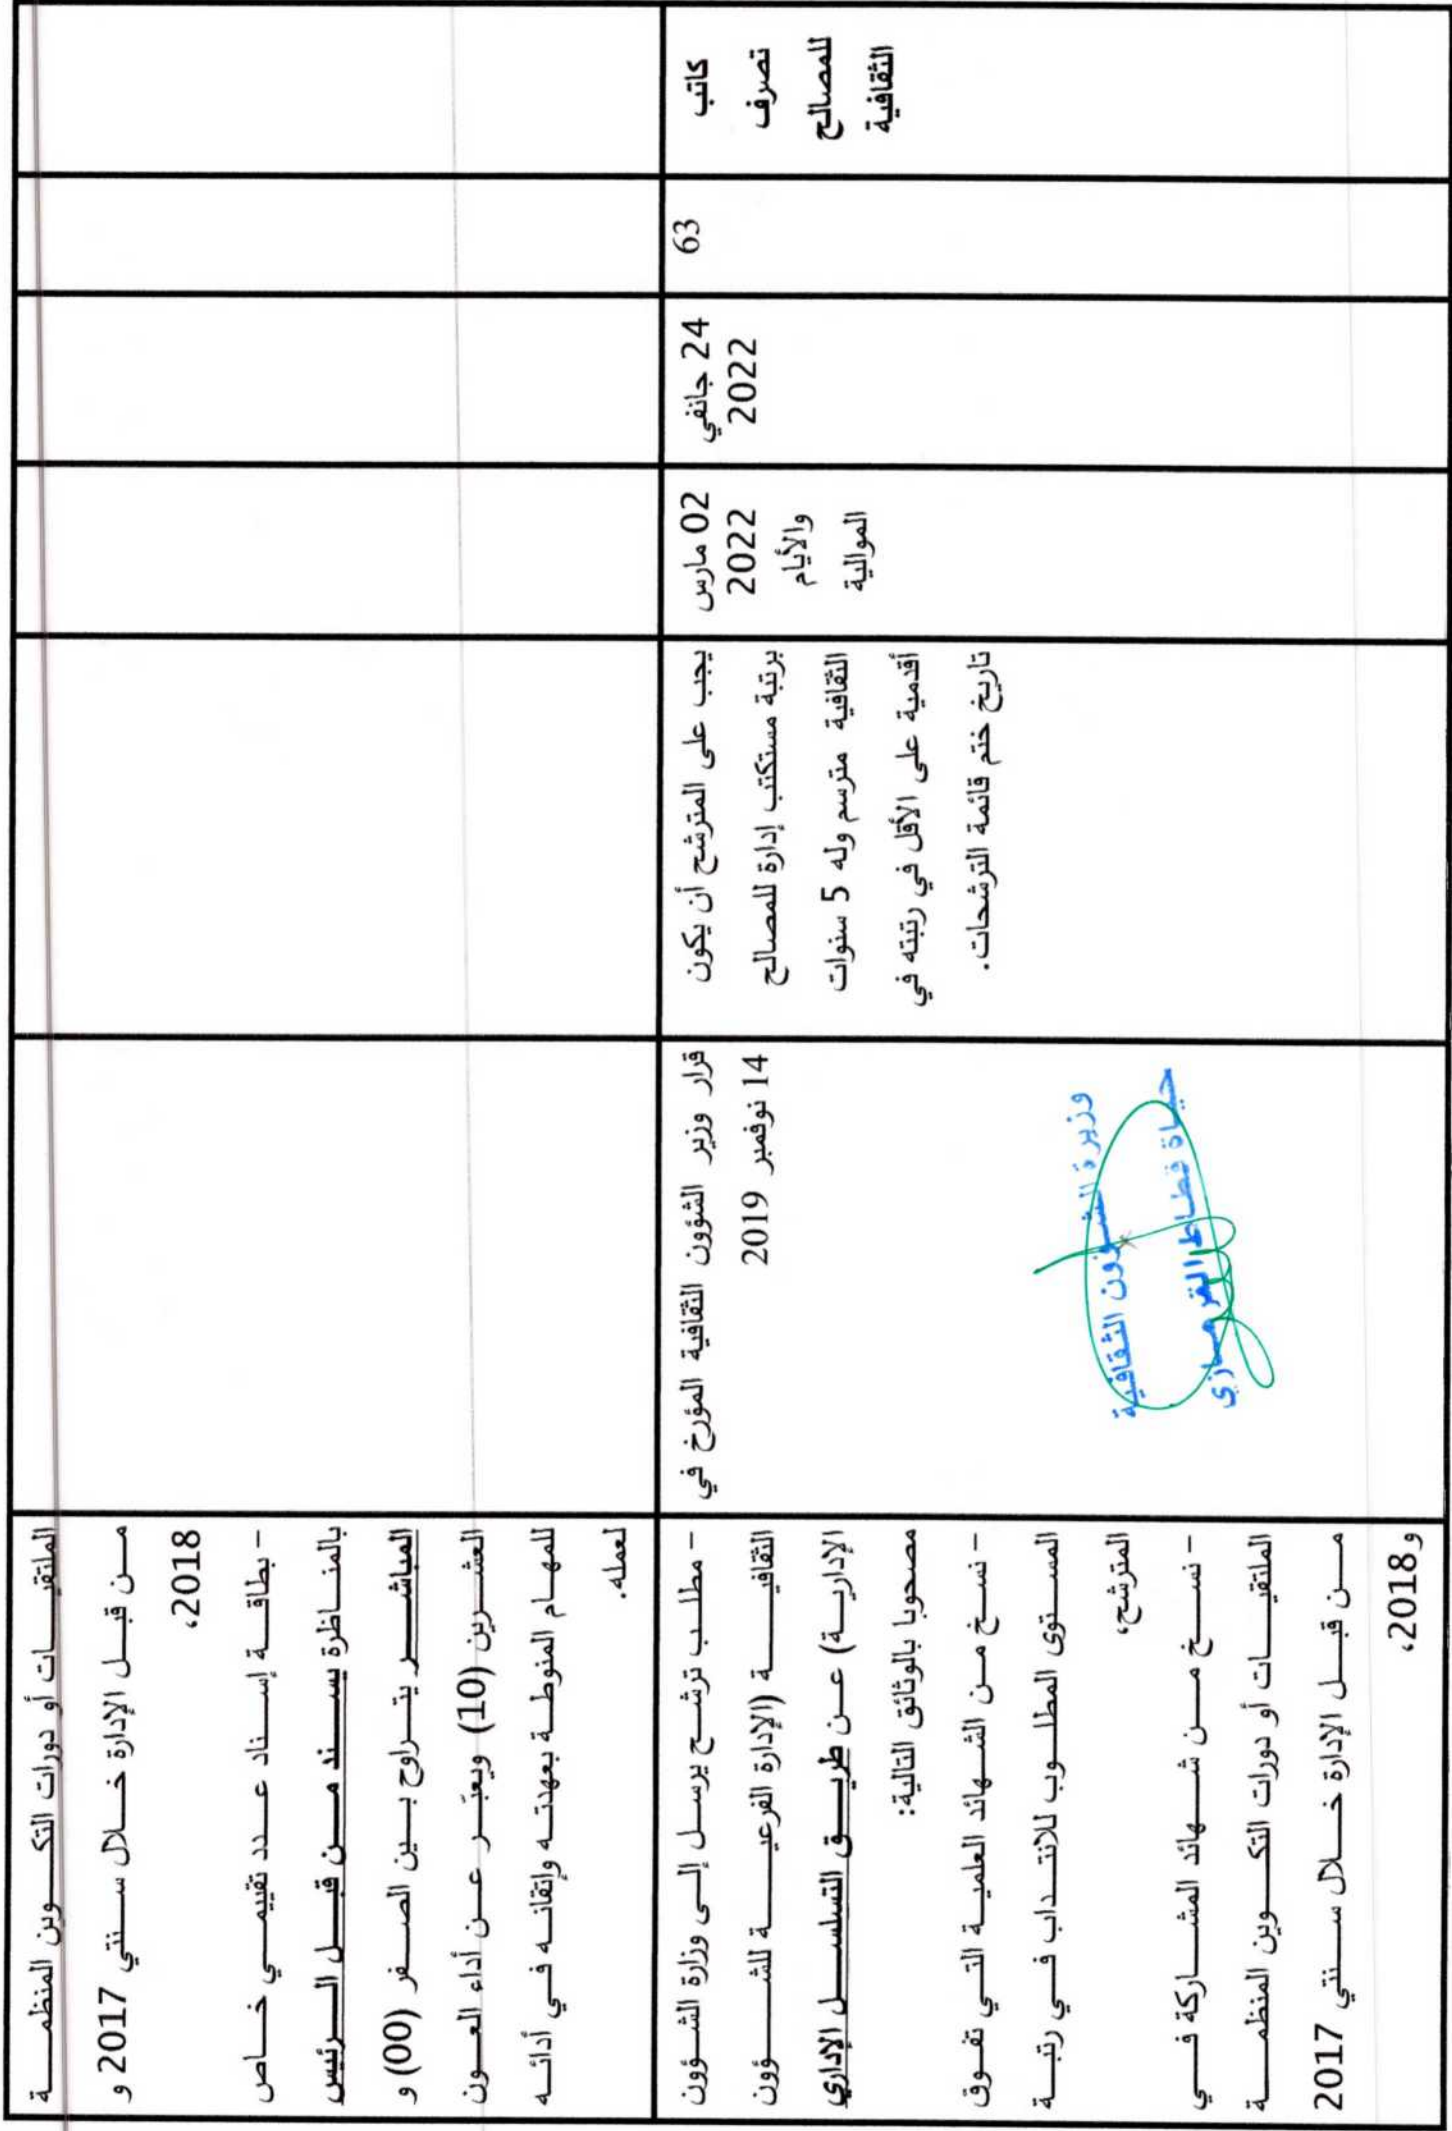 الملتقيات أو دورات التكوين المنظمة
من قبل الإدارة خلال سنتي 2017 و
2018،
- بطاقة إسناد عدد تقييمي خاص
بالمناظرة يسند من قبل الرئيس
المباشر يتراوح بين الصفر (00) و
العشرين (10) ويعبّر عن أداء العون
للمهام المنوطة بعهدته وإتقانه في أدائه
لعمله.
كاتب
تصرف
للمصالح
الثقافية
63
24 جانفي
2022
02 مارس
2022
والأيام
الموالية
يجب على المترشح أن يكون
برتبة مستكتب إدارة للمصالح
الثقافية مترسم وله 5 سنوات
أقدمية على الأقل في رتبته في
تاريخ ختم قائمة الترشحات.
قرار وزير الشؤون الثقافية المؤرخ في
14 نوفمبر 2019
وزيرة الشؤون الثقافية
حياة قطاط القرمازي
- مطلب ترشح يرسل إلى وزارة الشؤون
الثقافية (الإدارة الفرعية للشؤون
الإدارية) عن طريق التسلسل الإداري
مصحوبا بالوثائق التالية:
- نسخ من الشهائد العلمية التي تفوق
المستوى المطلوب للانتداب في رتبة
المترشح،
- نسخ من شهائد المشاركة في
الملتقيات أو دورات التكوين المنظمة
من قبل الإدارة خلال سنتي 2017
و2018،